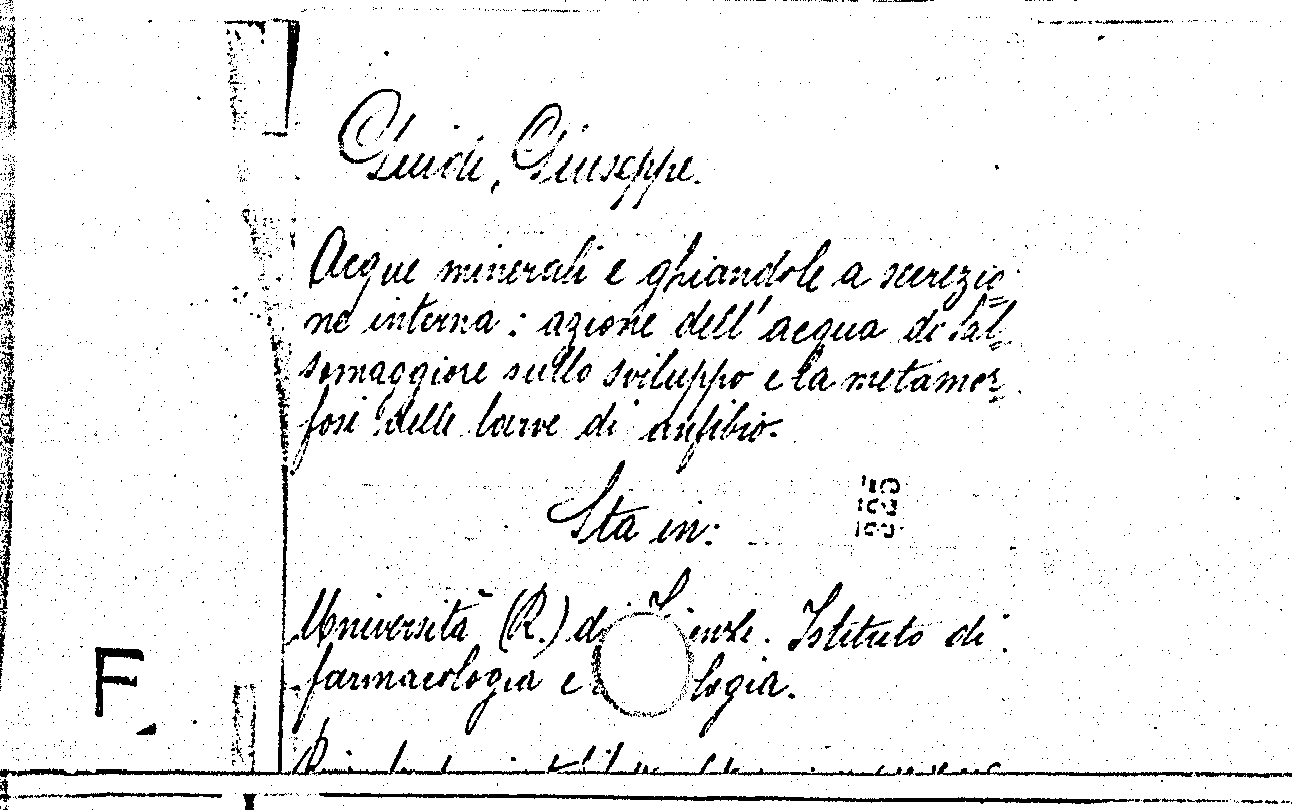 Guidi, Giuseppe.
Acque minerali e ghiandole a secrezio=
ne interna : azione dell'acqua di Sal=
somaggiore sullo sviluppo e la metamor=
fosi delle larve di anfibio.
Sta in:
Università (R.) di Firenze. Istituto di
farmacologia e logia.
F